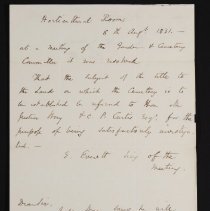 Horticultural Room
6th Augt 1831. —
at a meeting of the Garden & Cemetery
Committee it was resolved
That the subject of the title to
the Land on which the Cemetery is to
be established be referred to Hon Mr
Justice Story & C. P. Curtis Esqr. for the
purpose of being satisfactorily investiga-
ted. —
E Everett Secy of the
Meeting.
Dear Sir,